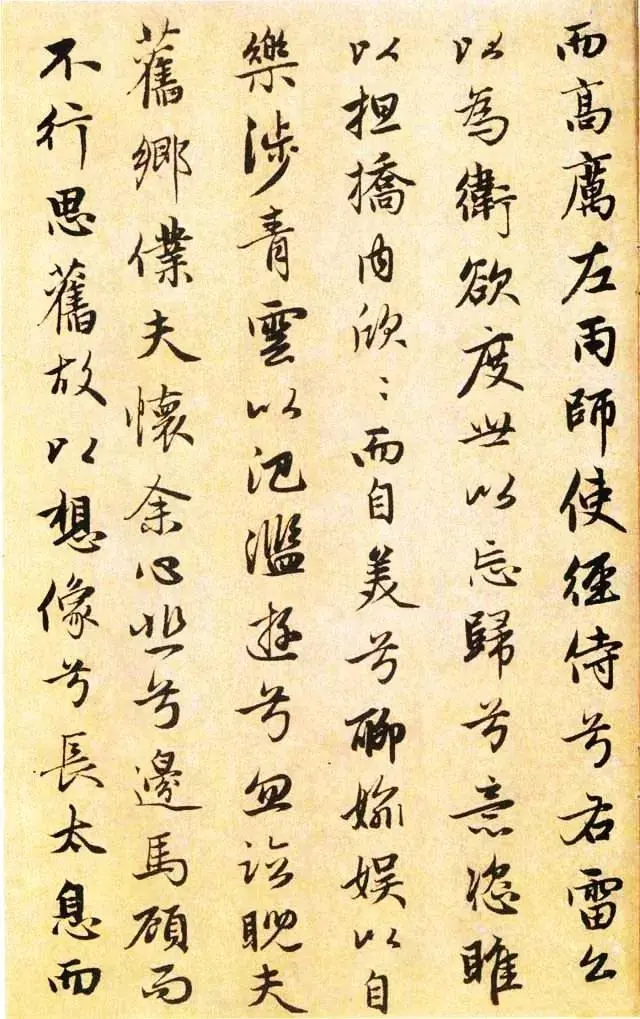 而高厲左雨師使徑侍兮右雷公
以為衛欲度世以忘歸兮意恣睢
以担撟内欣〻而自美兮聊媮娱以自
樂涉青雲以汜濫遊兮忽臨睨夫
舊鄉僕夫懷余心悲兮邊馬顧而
不行思舊故以想像兮長太息而